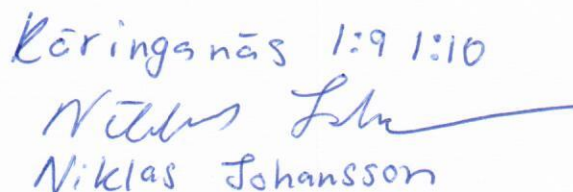 Käringanäs 1:9 1:10
Niklas Joh
Niklas Johansson